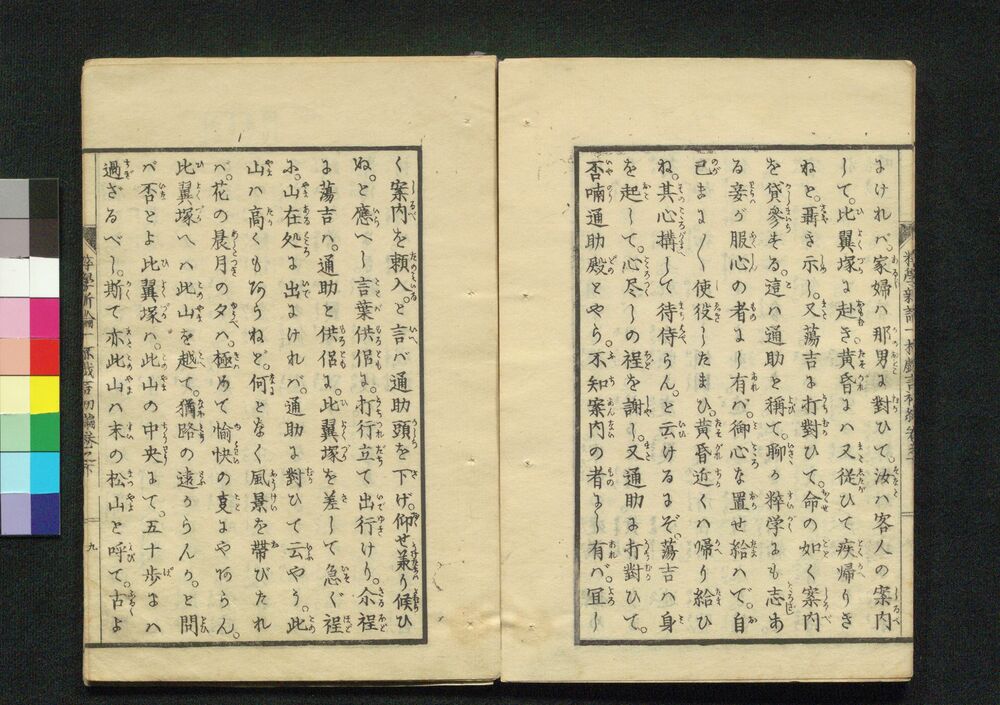 よけれバ。家婦ハ那男に對ひて。汝ハ客人の案内
して。比翼塚に赴き黄昏にハ又従ひて疾帰りき
ねと。聶き示し。又蕩吉に打對ひて。命の如く案内
を貸參する。這ハ通助と稱て。聊か粹学にも志あ
る妾が服心の者にし有バ。御心な置せ給ハで。自
己まに〱使役したまひ。黄昏近くハ帰り給ひ
ね。其心搆して待侍らん。と云けるにぞ。蕩吉ハ身
を起して。心尽しの程を謝し。又通助に打對ひて。
否喃通助殿とやら。不知案内の者にし有バ。冝し
く案内を頼入。と言バ通助頭を下げ。仰せ兼り候ひ
ぬ。と應へし言葉供侶に。打行立て出行けり。尒程
に蕩吉ハ。通助と供侶に。此翼塚を差して急ぐ程
に。山在処に出にけれバ。通助に對ひて云やう。此
山ハ高くもあらねど。何となく風景を帶びたれ
バ。花の晨月の夕ハ。極めて愉快の
にやあらん。
比翼塚へハ此山を越て。猶路の遠からんか。と問
バ否とよ比翼塚ハ。此山の中央にて。五十歩にハ
過ざるべし。斯て亦此山ハ末の松山と呼て。古よ
九